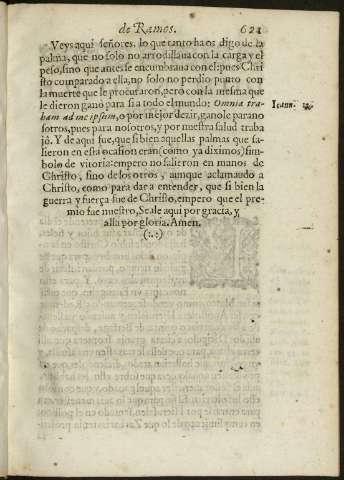 de Ramos. 621
Veys aqui señores, lo que tanto ha os digo de la
palma, que no solo no arrodillaua con la carga y el
peso, sino que antes se encumbraua con el: pues Chri
sto comparado a ella, no solo no perdio punto con
la muerte que le procuraron, pero con la mesma que
le dieron ganò para si a todo el mundo: Omnia tra-
ham ad me ipsum, o por mejor dezir, ganole para no
sotros, pues para nosotros, y por nuestra salud traba
jò. Y de aqui fue, que si bien aquellas palmas que sa-
lieron en esta ocasion eran (como ya diximos) sim-
bolo de vitoria: empero no salieron en manos de
Christo, sino de los otros, aunque aclamando a
Christo, como para dar a entender, que si bien la
guerra y fuerça fue de Christo, empero que el pre-
mio fue nuestro, Seale aqui por gracia, y
alla por gloria. Amen.
(:.:)
Ioann.